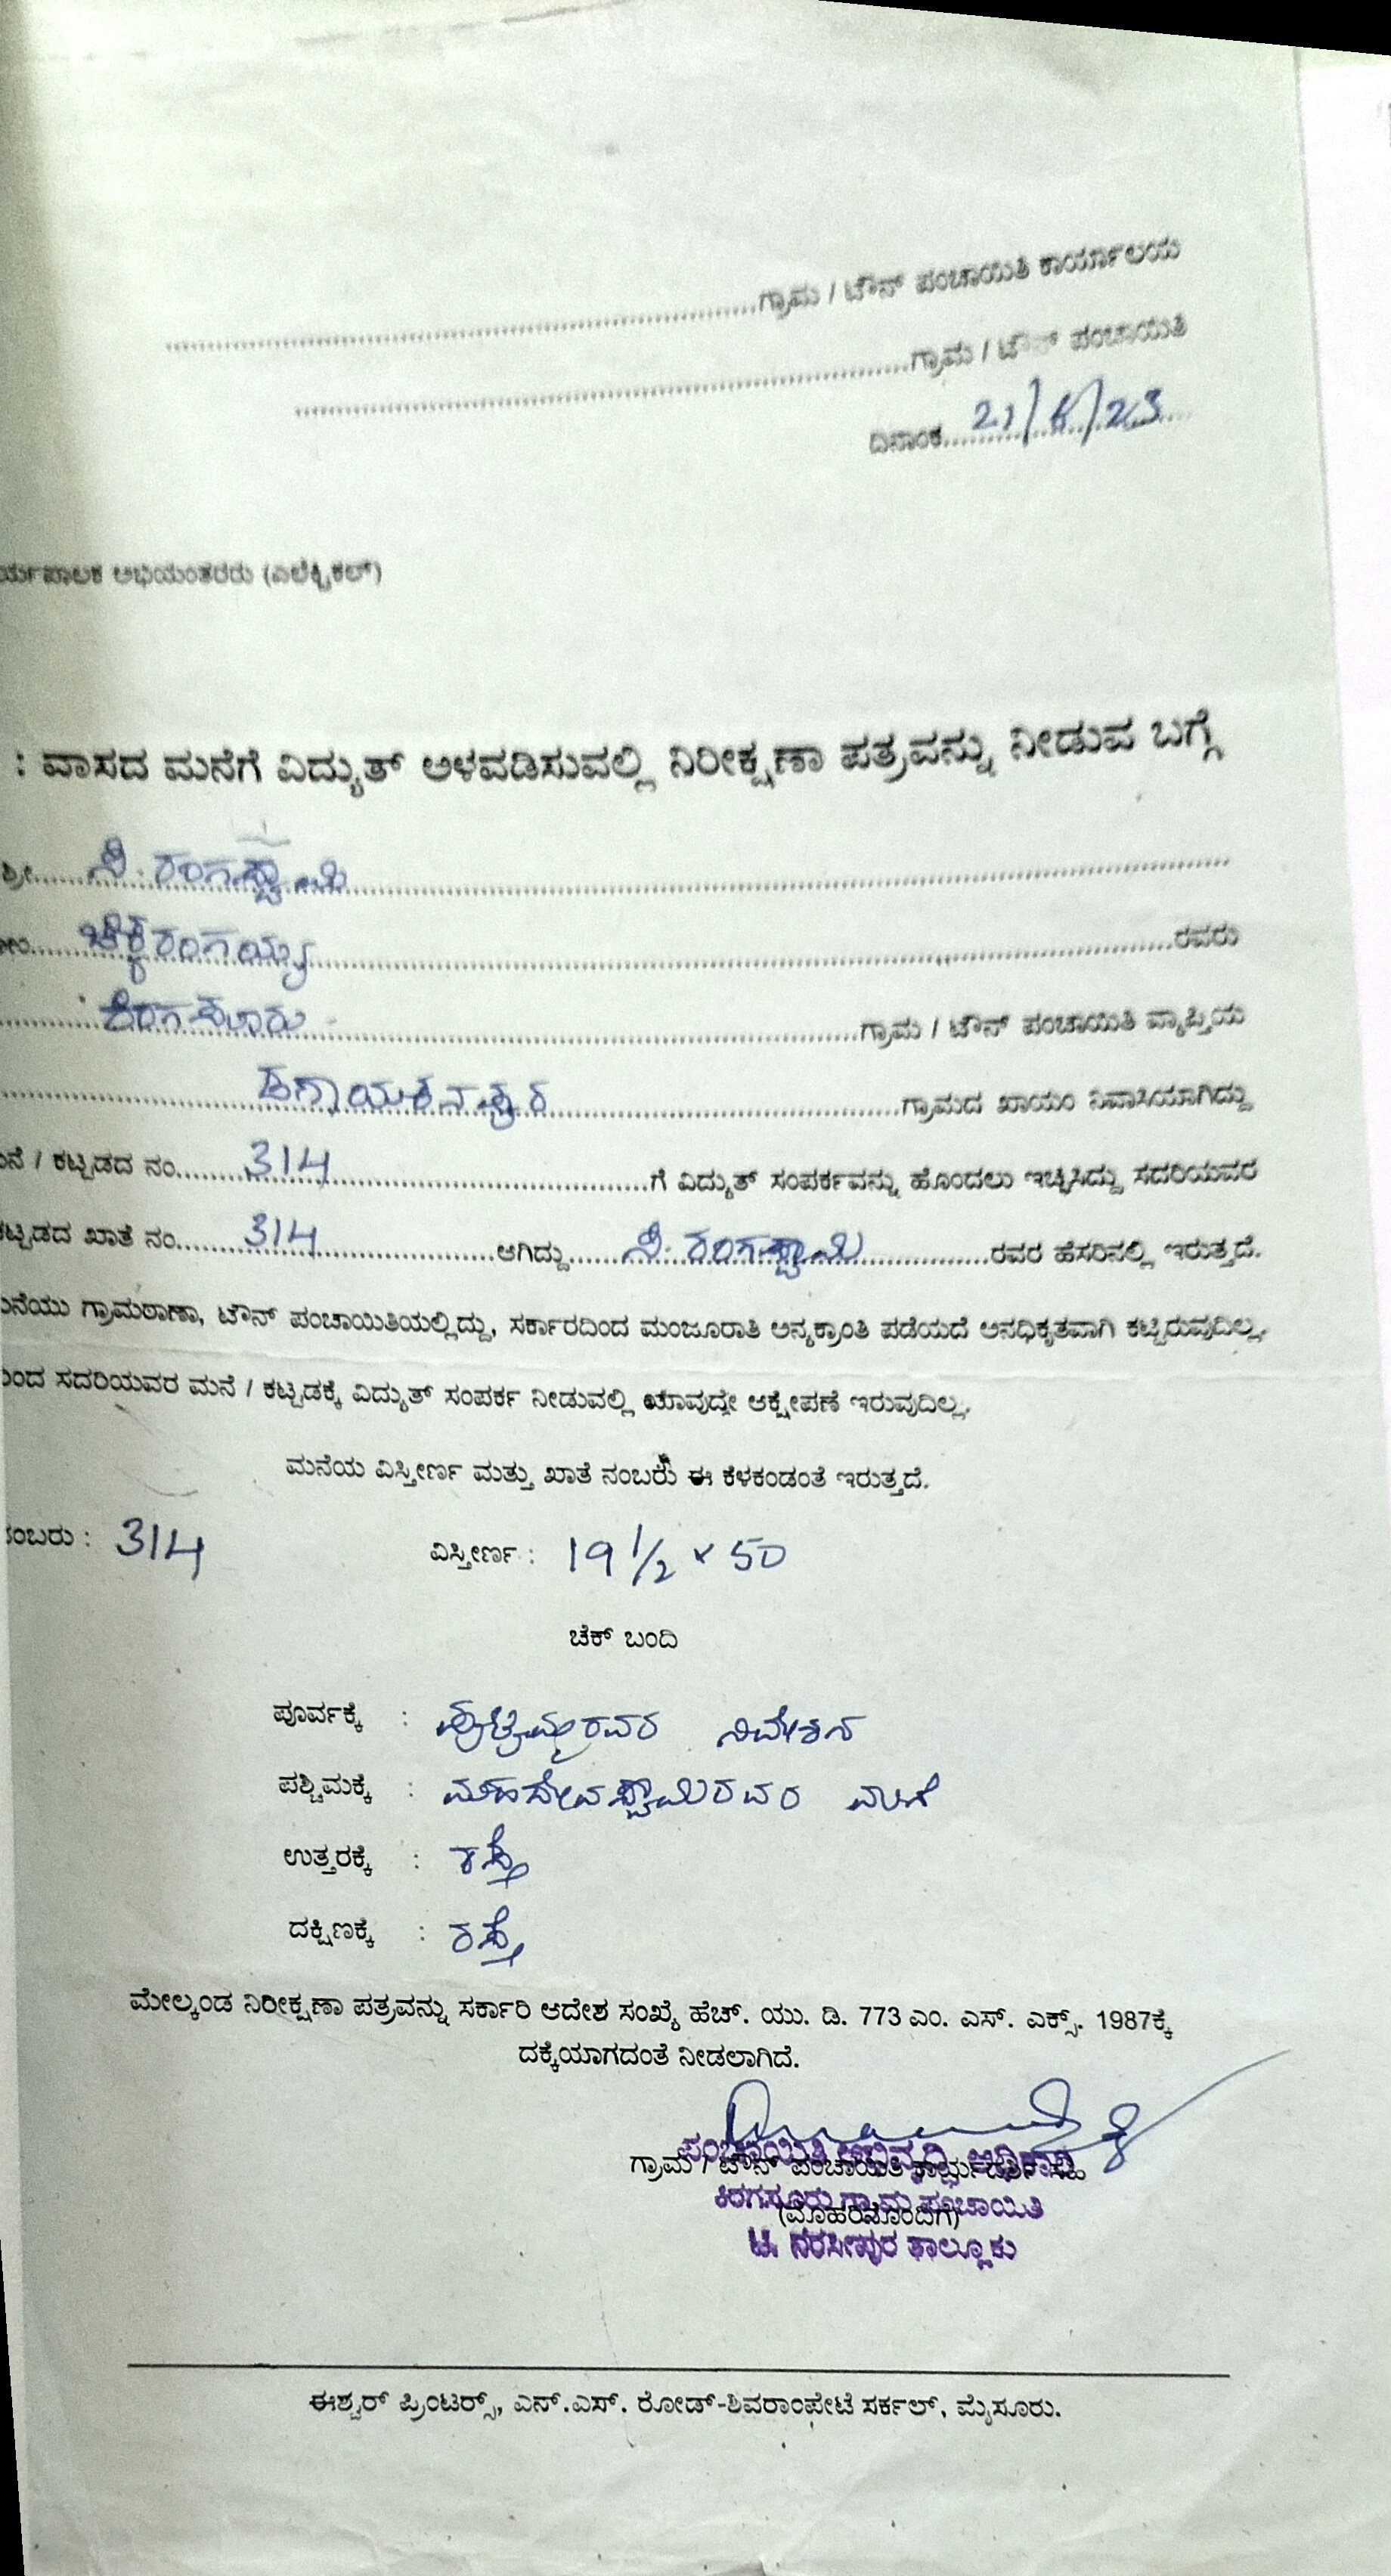 ........................ಗ್ರಾಮ / ಟೌನ್ ಪಂಚಾಯಿತಿ ಕಾರ್ಯಾಲಯ
........................ಗ್ರಾಮ / ಟೌನ್ ಪಂಚಾಯಿತಿ
ದಿನಾಂಕ.....21/8/23
ರ್ಯಪಾಲಕ ಅಭಿಯಂತರರು (ಎಲೆಕ್ಟ್ರಿಕಲ್)
: ವಾಸದ ಮನೆಗೆ ವಿದ್ಯುತ್ ಅಳವಡಿಸುವಲ್ಲಿ ನಿರೀಕ್ಷಣಾ ಪತ್ರವನ್ನು ನೀಡುವ ಬಗ್ಗೆ
ಶ್ರೀ..... ಸಿ. ರಂಗಸ್ವಾಮಿ
ಚಿಕ್ಕರಂಗಯ್ಯ ........ರವರು
ಕಿರಗಸೂರು ........ಗ್ರಾಮ / ಟೌನ್ ಪಂಚಾಯಿತಿ ವ್ಯಾಪ್ತಿಯ
........ಗ್ರಾಮದ ಖಾಯಂ ನಿವಾಸಿಯಾಗಿದ್ದು
ನೆ / ಕಟ್ಟಡದ ನಂ........314........ಗೆ ವಿದ್ಯುತ್ ಸಂಪರ್ಕವನ್ನು ಹೊಂದಲು ಇಚ್ಛಿಸಿದ್ದು ಸದರಿಯವರ
ಕಟ್ಟಡದ ಖಾತೆ ನಂ........314........ಆಗಿದ್ದು...... ಸಿ. ರಂಗಸ್ವಾಮಿ ........ರವರ ಹೆಸರಿನಲ್ಲಿ ಇರುತ್ತದೆ.
ನೆಯು ಗ್ರಾಮಠಾಣಾ, ಟೌನ್ ಪಂಚಾಯಿತಿಯಲ್ಲಿದ್ದು, ಸರ್ಕಾರದಿಂದ ಮಂಜೂರಾತಿ ಅನ್ಯಕ್ರಾಂತಿ ಪಡೆಯದೆ ಅನಧಿಕೃತವಾಗಿ ಕಟ್ಟಿರುವುದಿಲ್ಲ.
ಂದ ಸದರಿಯವರ ಮನೆ / ಕಟ್ಟಡಕ್ಕೆ ವಿದ್ಯುತ್ ಸಂಪರ್ಕ ನೀಡುವಲ್ಲಿ ಯಾವುದೇ ಆಕ್ಷೇಪಣೆ ಇರುವುದಿಲ್ಲ.
ಮನೆಯ ವಿಸ್ತೀರ್ಣ ಮತ್ತು ಖಾತೆ ನಂಬರು ಈ ಕೆಳಕಂಡಂತೆ ಇರುತ್ತದೆ.
ನಂಬರು : 314 ವಿಸ್ತೀರ್ಣ : 19 1/2 × 50
ಚೆಕ್ ಬಂದಿ
ಪೂರ್ವಕ್ಕೆ : ಪುಟ್ಟಮ್ಮರವರ ನಿವೇಶನ
ಪಶ್ಚಿಮಕ್ಕೆ : ಮಹದೇವಸ್ವಾಮಿರವರ ಮನೆ
ಉತ್ತರಕ್ಕೆ : ರಸ್ತೆ
ದಕ್ಷಿಣಕ್ಕೆ : ರಸ್ತೆ
ಮೇಲ್ಕಂಡ ನಿರೀಕ್ಷಣಾ ಪತ್ರವನ್ನು ಸರ್ಕಾರಿ ಆದೇಶ ಸಂಖ್ಯೆ ಹೆಚ್. ಯು. ಡಿ. 773 ಎಂ. ಎಸ್. ಎಕ್ಸ್. 1987ಕ್ಕೆ
ದಕ್ಕೆಯಾಗದಂತೆ ನೀಡಲಾಗಿದೆ.
ಪಂಚಾಯಿತಿ ಅಭಿವೃದ್ಧಿ ಅಧಿಕಾರಿ
ಗ್ರಾಮ / ಟೌನ್ ಪಂಚಾಯಿತಿ ಕಾರ್ಯದರ್ಶಿ ಸಹಿ
ಕಿರಗಸೂರು ಗ್ರಾಮ ಪಂಚಾಯಿತಿ
(ಮೊಹರಿನೊಂದಿಗೆ)
ಟಿ. ನರಸೀಪುರ ತಾಲ್ಲೂಕು
ಈಶ್ವರ್ ಪ್ರಿಂಟರ್ಸ್, ಎನ್.ಎಸ್. ರೋಡ್-ಶಿವರಾಂಪೇಟೆ ಸರ್ಕಲ್, ಮೈಸೂರು.